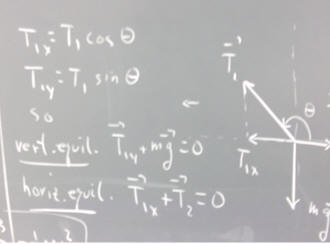 T₁ₓ = T₁ cos θ
T₁y = T₁ sin θ
so
vert. equil. T⃗₁y + mg⃗ = 0
horiz. equil. T⃗₁ₓ + T⃗₂ = 0
T⃗₁
θ
T₁ₓ
mg⃗